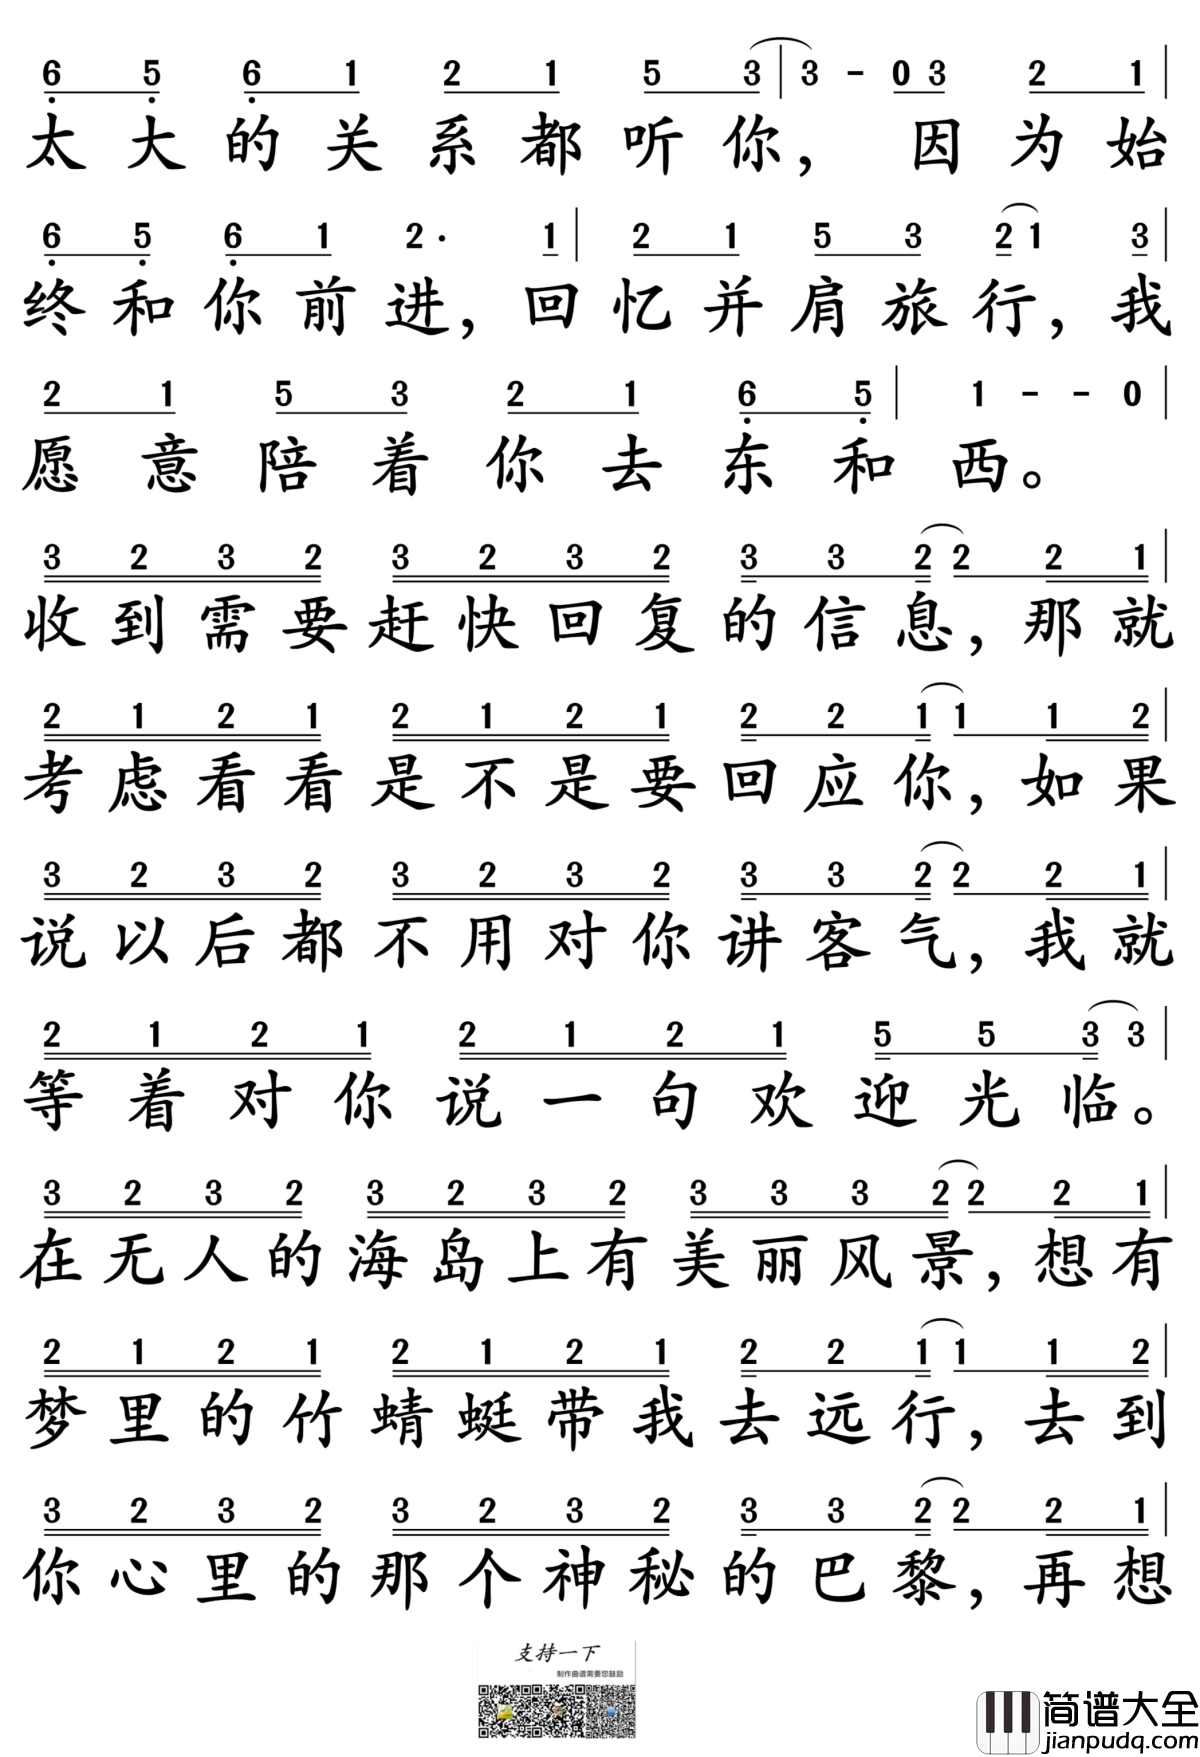 6 5 6 1 2 1 5 3 | 3 - 0 3 2 1 |
太大的关系都听你，因为始
6 5 6 1 2· 1 | 2 1 5 3 2 1 3 |
终和你前进，回忆并肩旅行，我
2 1 5 3 2 1 6 5 | 1 - - 0 |
愿意陪着你去东和西。
3 2 3 2 3 2 3 2 3 3 2 2 2 1 |
收到需要赶快回复的信息，那就
2 1 2 1 2 1 2 1 2 2 1 1 1 2 |
考虑看看是不是要回应你，如果
3 2 3 2 3 2 3 2 3 3 2 2 2 1 |
说以后都不用对你讲客气，我就
2 1 2 1 2 1 2 1 5 5 3 3 |
等着对你说一句欢迎光临。
3 2 3 2 3 2 3 2 3 3 3 2 2 2 1 |
在无人的海岛上有美丽风景，想有
2 1 2 1 2 1 2 1 2 2 1 1 1 2 |
梦里的竹蜻蜓带我去远行，去到
3 2 3 2 3 2 3 2 3 3 2 2 2 1 |
你心里的那个神秘的巴黎，再想
支持一下
制作曲谱需要您鼓励
简谱大全
jianpudq.com